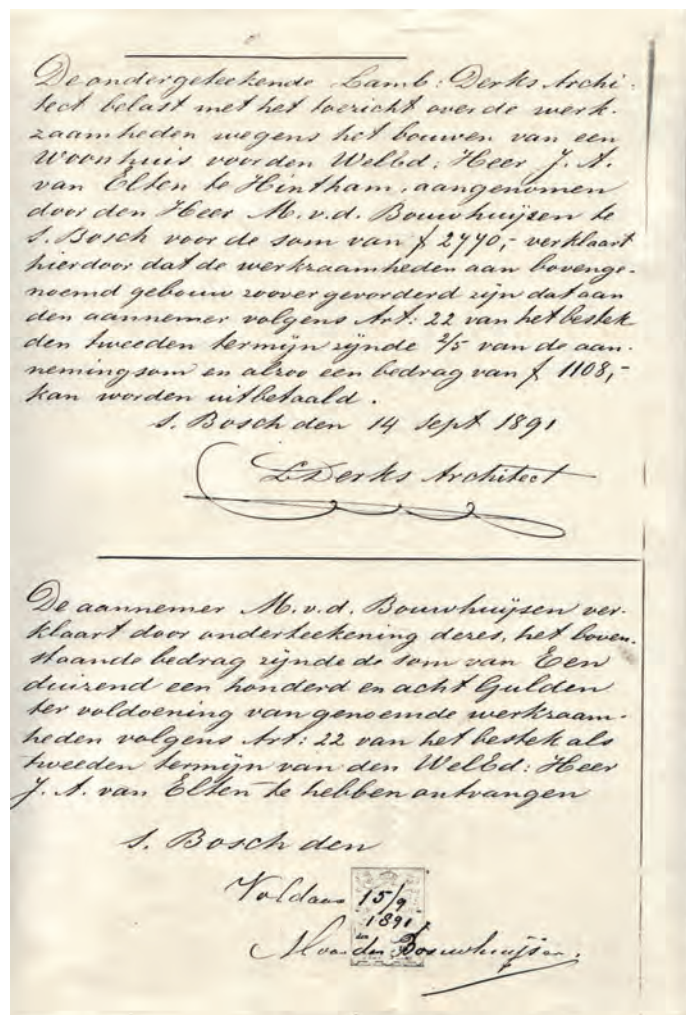 De ondergeteekende Lamb: Derks Archi-
tect belast met het toezicht over de werk-
zaamheden wegens het bouwen van een
Woonhuis voor den WelEd: Heer J. A.
van Elten te Hintham, aangenomen
door den Heer M. v. d. Bouwhuijsen te
S. Bosch voor de som van ƒ 2770,- verklaart
hierdoor dat de werkzaamheden aan bovenge-
noemd gebouw zoover gevorderd zijn dat aan
den aannemer volgens Art: 22 van het bestek
den tweeden termijn zijnde 2/5 van de aan-
nemingsom en alzoo een bedrag van ƒ 1108,-
kan worden uitbetaald.
S. Bosch den 14 Sept 1891
L Derks Architect
De aannemer M. v. d. Bouwhuijsen ver-
klaart door onderteekening dezes, het boven-
staande bedrag zijnde de som van Een
duizend een honderd en acht Gulden
ter voldoening van genoemde werkzaam-
heden volgens Art: 22 van het bestek als
tweeden termijn van den WelEd: Heer
J. A. van Elten te hebben ontvangen
S. Bosch den
Voldaan 15/9
1891
M van den Bouwhuijsen.